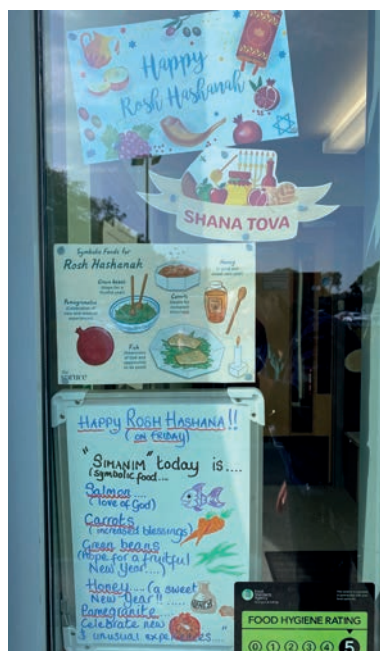 Happy
Rosh Hashanah
SHANA TOVA
Symbolic Foods for
Rosh Hashanah
Honey
Green beans
Carrots
Pomegranate
Fish
the
spruce
HAPPY ROSH HASHANA!!
(ON FRIDAY)
"SIMANIM" today is....
(symbolic food...
Salmon....
(love of God)
Carrots
(increased blessings)
Green beans
(Hope for a fruitful
New Year....)
Honey....(a sweet
New Year!! .....
Pomegranite....
Celebrate new
& unusual experiences....
FOOD HYGIENE RATING
0 1 2 3 4 5